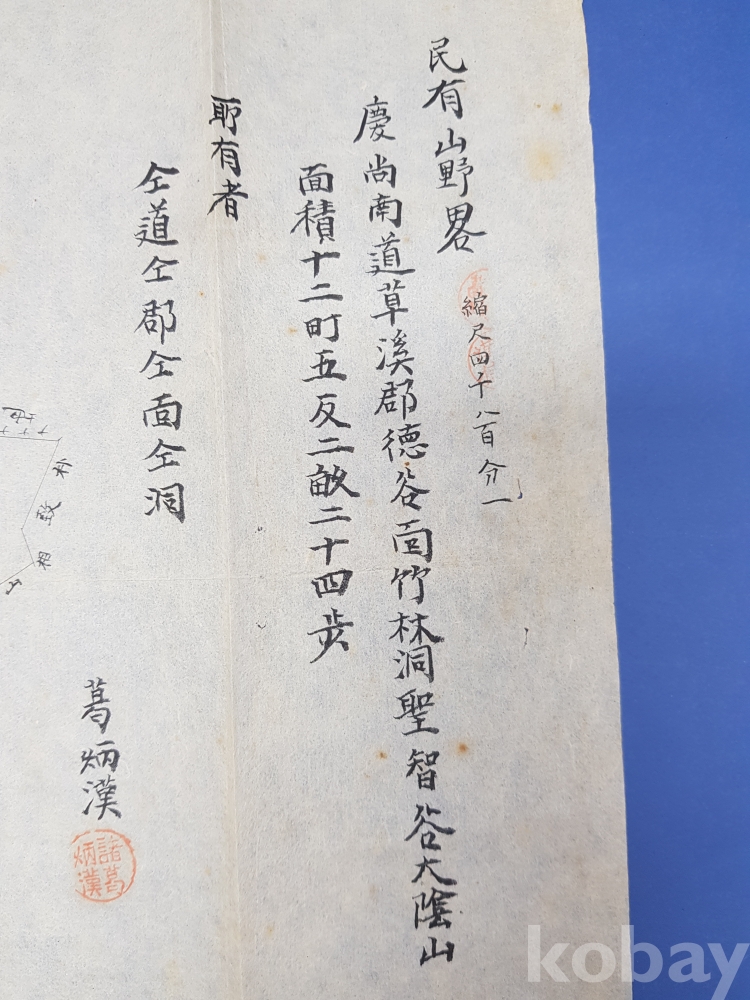 民有山野畧
縮尺四千八百分一
慶尚南道草溪郡德谷面竹林洞聖智谷大陰山
面積十二町五反二畝二十四步
所有者
仝道仝郡仝面仝洞
葛炳漢
諸葛炳漢
kobay